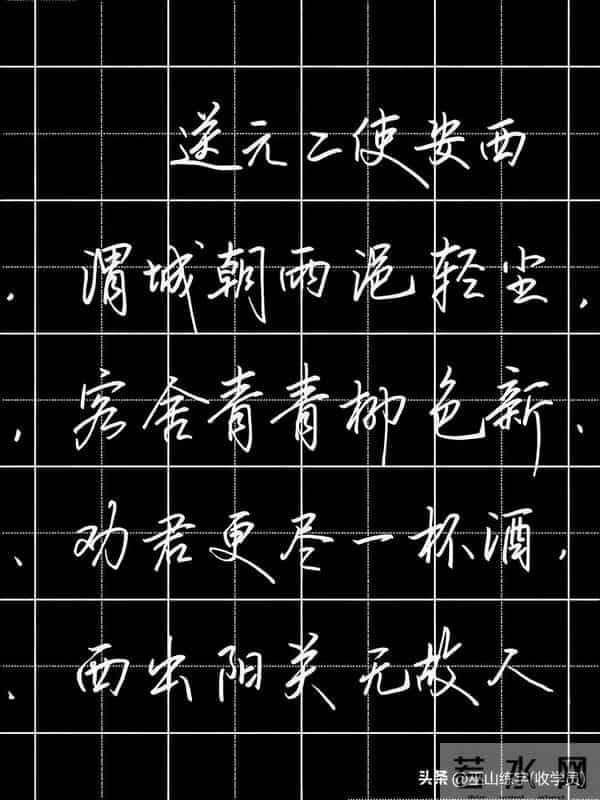 送元二使安西
渭城朝雨浥轻尘，
客舍青青柳色新、
劝君更尽一杯酒，
西出阳关无故人
若水网
头条@巫山练字(收学员)